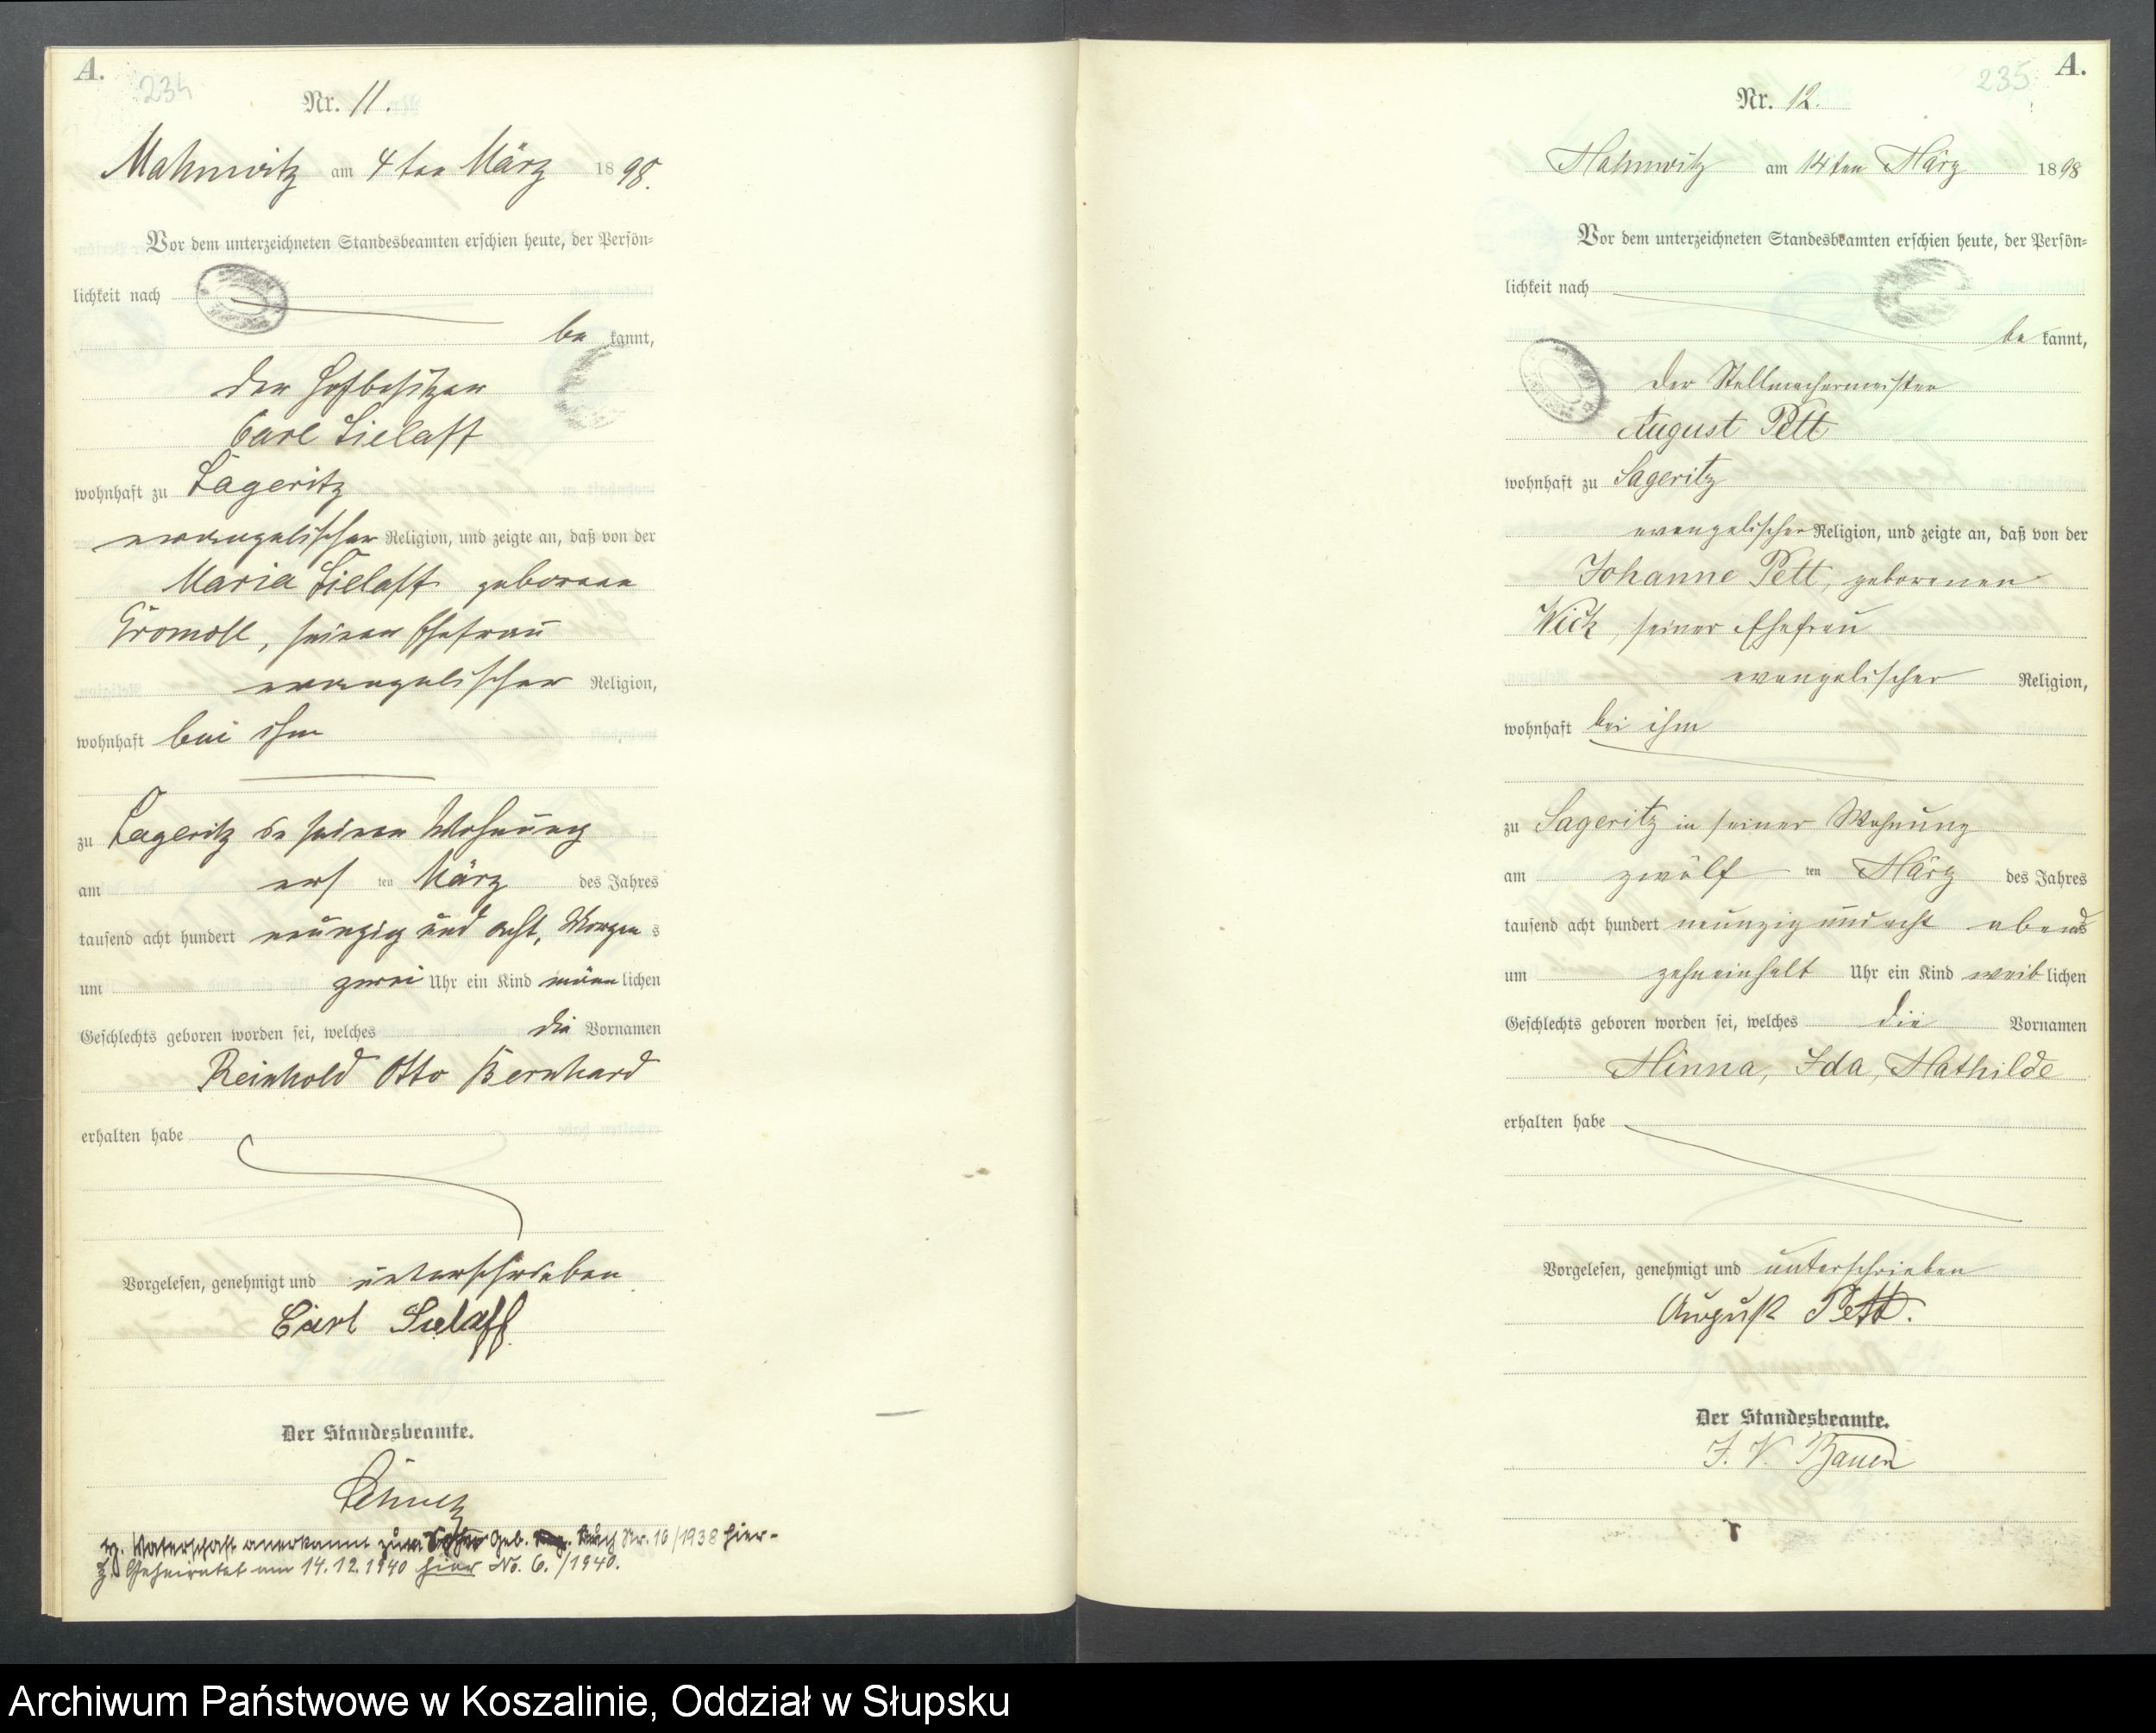 A.
234
Nr. 11.
Mahnwitz am 4ten März 1898.
Vor dem unterzeichneten Standesbeamten erschien heute, der Persön-
lichkeit nach
be kannt,
der Hofbesitzer
Carl Sielaff
wohnhaft zu Sageritz
evangelischer Religion, und zeigte an, daß von der
Maria Sielaff geborene
Gromoll, seiner Ehefrau
evangelischer Religion,
wohnhaft bei ihm
zu Sageritz in seiner Wohnung
am ers ten März des Jahres
tausend acht hundert neunzig und acht, Morgen s
um zwei Uhr ein Kind männ lichen
Geschlechts geboren worden sei, welches die Vornamen
Reinhold Otto Bernhard
erhalten habe
Vorgelesen, genehmigt und unterschrieben
Carl Sielaff
Der Standesbeamte.
Vaterschaft anerkannt zum Geb. Buch Nr. 10/1938 hier-
2.) Geheiratet am 14.12.1940 hier No. 6./1940.
A.
235
Nr. 12.
Mahnwitz am 14ten März 1898
Vor dem unterzeichneten Standesbeamten erschien heute, der Persön-
lichkeit nach
be kannt,
der Stellmachermeister
August Pett
wohnhaft zu Sageritz
evangelischer Religion, und zeigte an, daß von der
Johanne Pett, geborenen
Wick, seiner Ehefrau
evangelischer Religion,
wohnhaft bei ihm
zu Sageritz in seiner Wohnung
am zwölf ten März des Jahres
tausend acht hundert neunzig und acht abends
um zehneinhalb Uhr ein Kind weib lichen
Geschlechts geboren worden sei, welches die Vornamen
Minna, Ida, Mathilde
erhalten habe
Vorgelesen, genehmigt und unterschrieben
August Pett.
Der Standesbeamte.
J. V. Bauer
Archiwum Państwowe w Koszalinie, Oddział w Słupsku